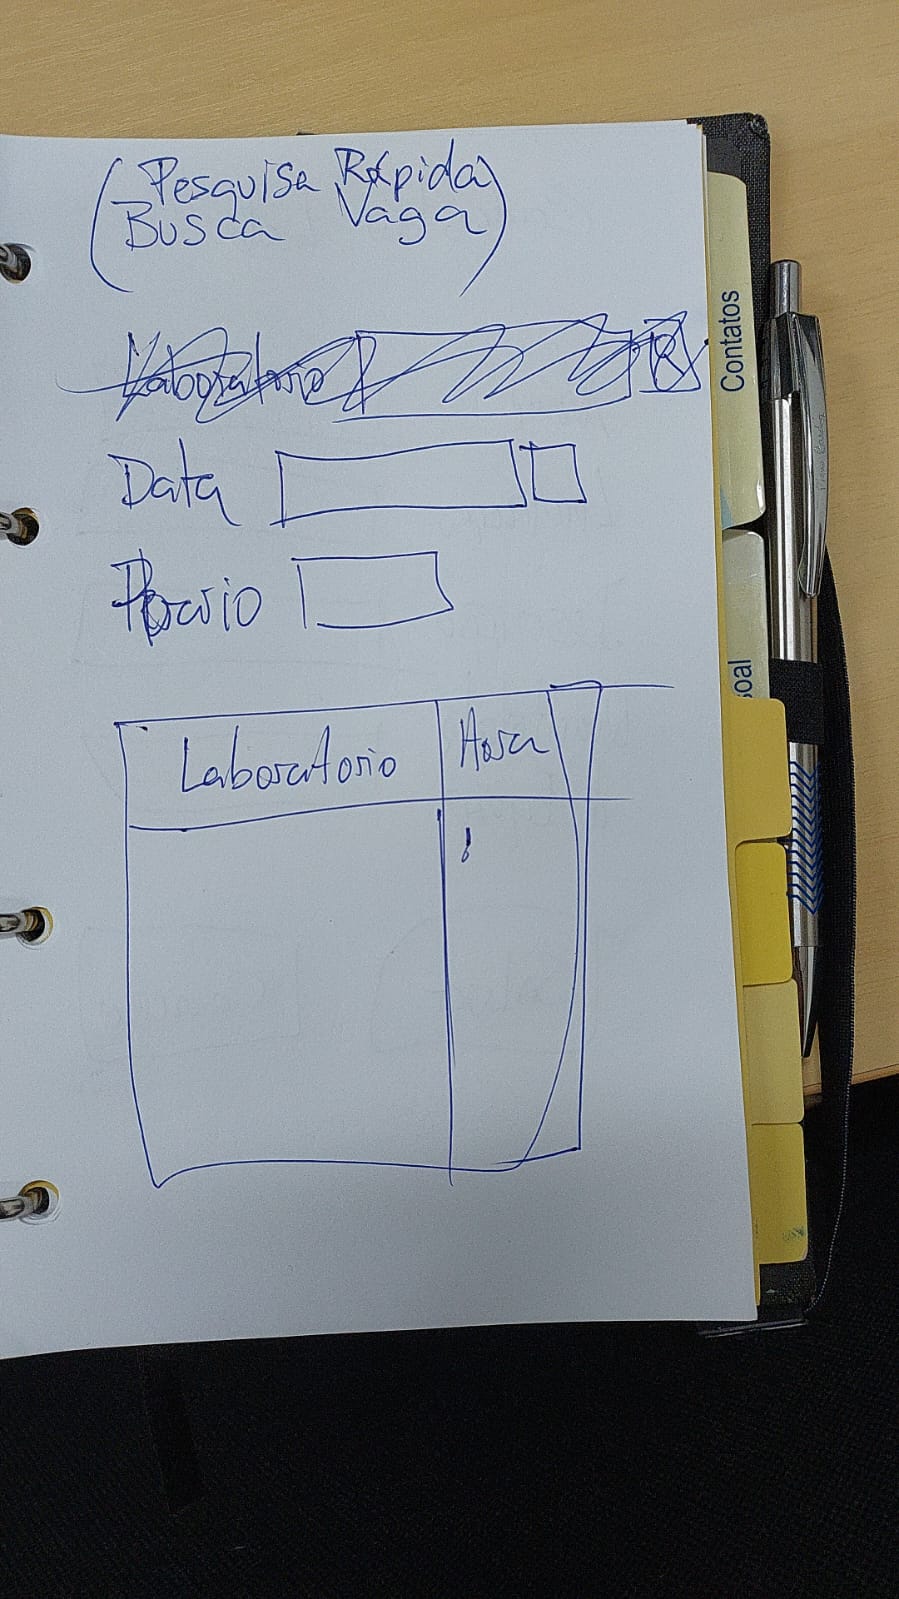 Pesquisa Rápida
Busca Vaga
Laboratorio
Data
Laboratorio
Hora
Contatos
soal